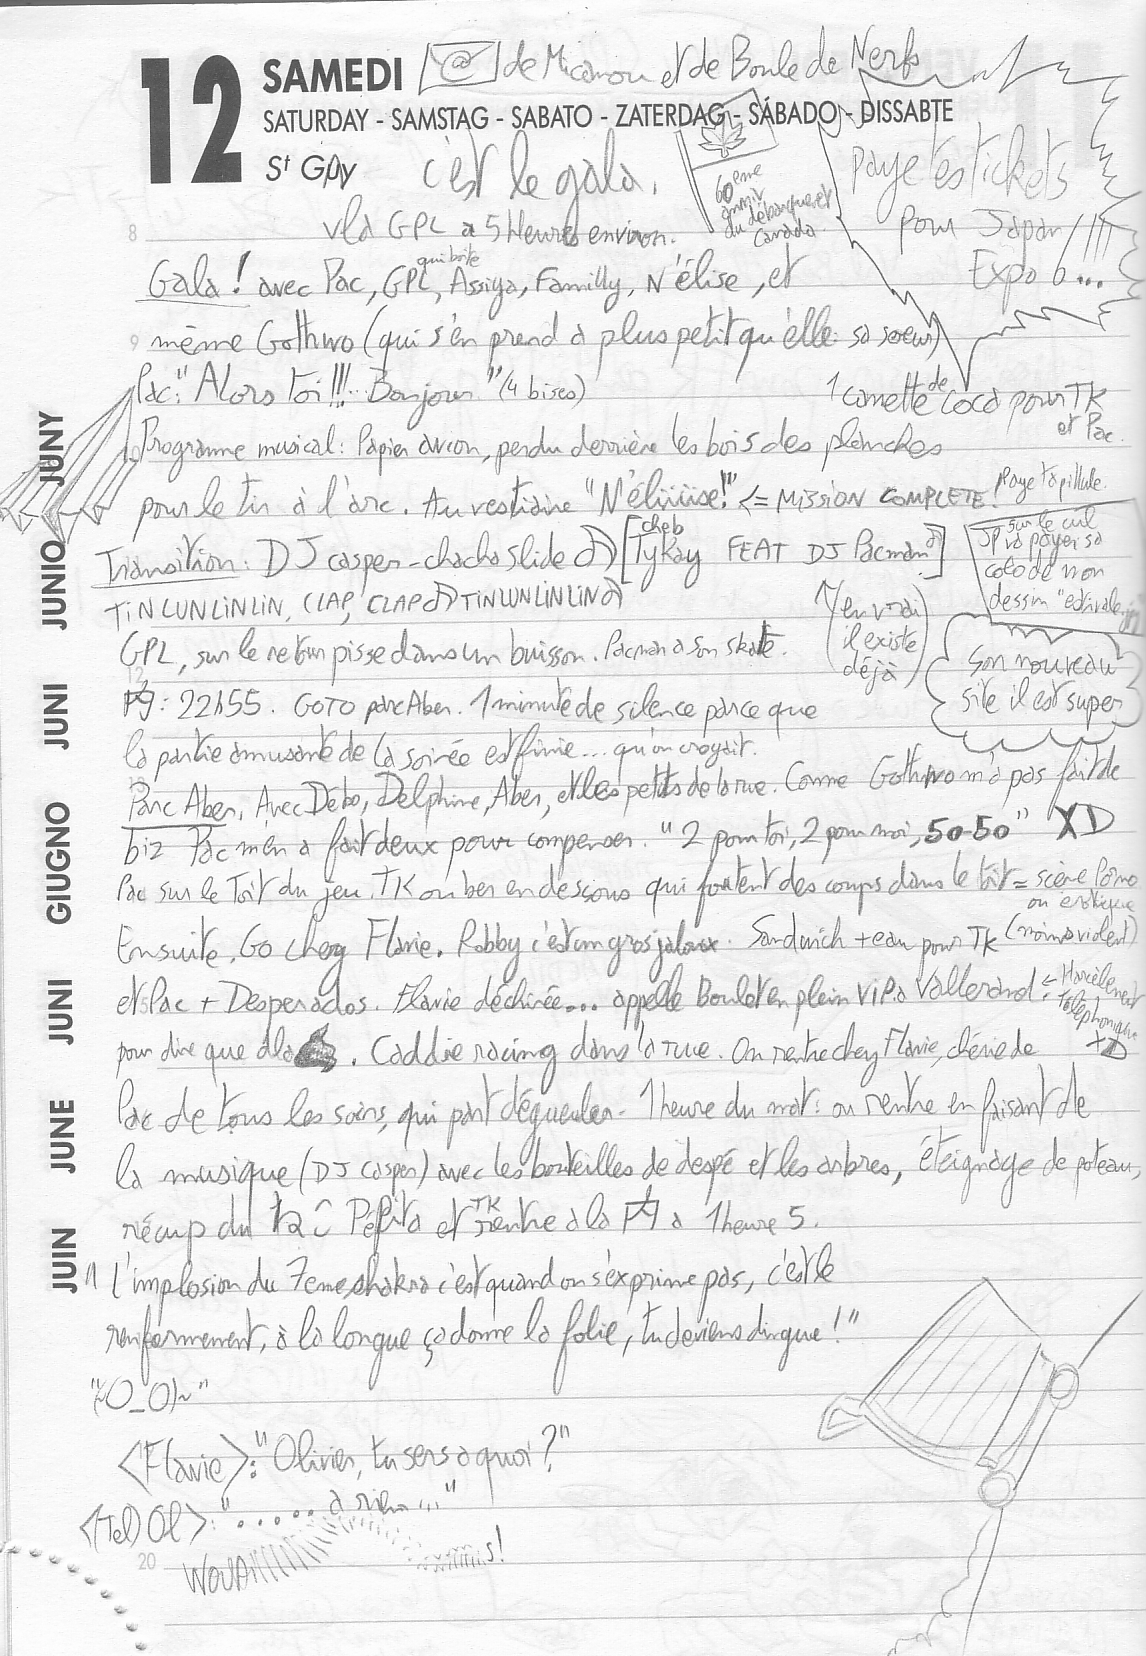 12 SAMEDI @ de Micamou et de Boule de Nerfs
SATURDAY - SAMSTAG - SABATO - ZATERDAG - SÁBADO - DISSABTE
St Guy c'est le gala.
60ème
anniv
du débarquement
Canada
Paye tes tickets
pour Japan
Expo 6...!!!
8
vla GPL a 5 Heures environ.
qui boite
Gala! avec Pac, GPL, Assiya, Familly, N'élise, et
9 même Gothwo (qui s'en prend à plus petit qu'elle: sa soeur)
Pac: "Alors toi!!!... Bonjour" (4 bises)
1 canette de coca pour TK
et Pac.
Programme musical: Papier avion, perdu derrière les bois des planches
pour le tir à l'arc. Au vestiaire "N'éliiiise!" <= MISSION COMPLETE!
Paye ta pillule.
sur le cul
JP va payer sa
colo de mon
dessin "estivale"
Transition: DJ casper - chacha slide [cheb TyKay FEAT DJ Pacman]
TiNLUNLiNLiN, CLAP, CLAP TiNLUNLiNLiN
(en vrai
il existe
déjà)
GPL, sur le retour pisse dans un buisson. Pacman a son skate.
Son nouveau
site il est super
: 22h55. GOTO parc Aber. 1 minute de silence parce que
la partie amusante de la soirée est finie... qu'on croyait.
Parc Aber. Avec Débo, Delphine, Aber, et les petits de la rue. Comme Gothwo m'a pas fait de
biz Pac m'en a fait deux pour compenser. "2 pour toi, 2 pour moi, 50-50" XD
Pac sur le Toit du jeu. TK ou ber en dessous qui foutent des coups dans le toit = scène Porno
ou erotique
(moins violent)
Ensuite, Go chez Flavie. Robby c'est un gros jaloux. Sandwich + eau pour TK
et Pac + Desperados. Flavie déchirée... appelle Boulet en plein VIP a Vallerand <= Harcèlement
téléphonique
XD
pour dire que dla . Caddie racing dans la rue. On rentre chez Flavie, chérie de
Pac de tous les soins, qui part dégueuler. 1 heure du mat: on rentre en faisant de
la musique (DJ casper) avec les bouteilles de despé et les arbres, éteignage de poteau,
récup du Pépita et TK rentre a la a 1 heure 5.
"L'implosion du 7eme shakra c'est quand on s'exprime pas, c'est le
renfermement, à la longue ça donne la folie, tu deviens dingue!"
"~(O_O)~"
<Flavie>: "Olivier, tu sers a quoi?"
<(Tel) Ol>: "..... a rien..."
20
JUIN JUNE JUNI GIUGNO JUNI JUNIO JUNY